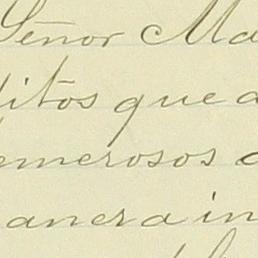 Señor Ma
ditos que a
emerosos a
anera in